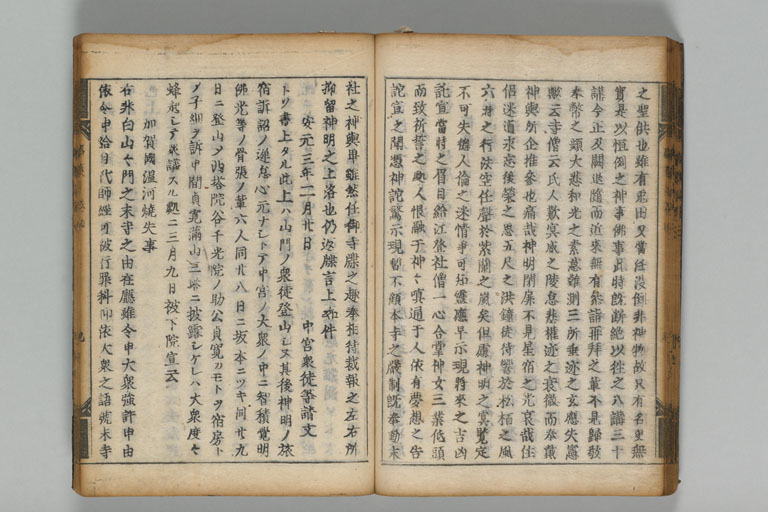 之聖供也雖有免田又實任沒倒非神物故只有名更無
實是以恒例之神事佛事此時既断絶以往之八講三十
講今正及闕退隨而近來無有参詣再拜之輩不見歸敬
奉幣之類大悲和光之素意難測三所垂迹之玄應失憑
愁云寺僧云氏人歎冥威之陵怠悲權迹之衰微而奉戴
神輿所企推参也痛哉神明閉扉不見星宿之光哀哉住
侶迷道求忘後榮之思五尺之洪鐘徒待響於松栢之風
六時之行法空任聲於紫蘭之嵐矣但慮神明之冥覽定
不可失僧人倫之迷情爭可知靈應早示現將來之吉凶
詫宣當時之眉目給江發社僧一心合掌神女三業低頭
而致祈誓之處人恨融于神々嗔通于人依有夢想之告
詫宣之聞憑神詫驚示現暫不顧本寺之嚴制既奉動末
社之神輿畢雖然任御寺牒之趣奉相待裁報之左右所
抑留神明之上洛也仍返牒言上如件
安元三年二月廿日 中宮衆徒等諸文
トソ書上タル此上ハ山門ノ衆徒登山シヌ其後神明ノ旅
宿訴詔ノ遅怠心元ナシトテ中宮ノ大衆ノ中ニ智積覺明
佛光等ノ骨張ノ輩六人同廿八日ニ坂本ニツキ同廿九
日ニ登山シ西塔院谷千光院ノ助公貞寛カモトヲ宿房ト
ノ子細ヲ訴申間貞寛満山三塔ニ披露シケレハ大衆度々
蜂起シテ衆議スル處ニ三月九日被下院宣云
加賀國温河焼失事
右非白山々門之末寺之由在廳雖令申大衆強訴申由
依令申給目代師經可被行罪科仰依大衆之語號末寺